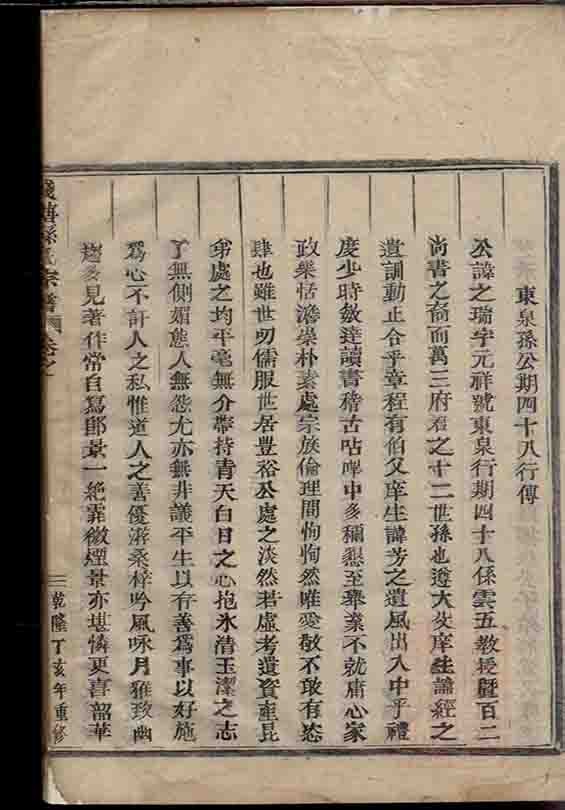 東泉孫公期四十八行傳
公諱之瑞字元祥號東泉行期四十八係雲五教授曁百二
尚書之裔而萬三府君之十二世孫也遵大父庠生諱經之
遺訓動止合乎章程有伯父庠生諱芳之遺風出入中乎禮
度少時敏達讀書稽古呫嗶中多稱懇至舉業不就庸心家
政樂恬澹崇朴素處宗族倫理間恂恂然唯愛敬不敢有恣
肆也雖世叨儒服世居豐裕公處之淡然若虛考遺資產昆
弟處之均平毫無介蒂持青天白日之心抱氷清玉潔之志
了無側媚態人無怨尤亦無非議平生以存善爲事以好施
爲心不訐人之私惟道人之善優游桑梓吟風咏月雅致幽
趣多見著作常自寫郎景一絶霏微煙景亦堪憐更喜韶華
孫氏宗譜 卷之
乾隆丁亥年重修